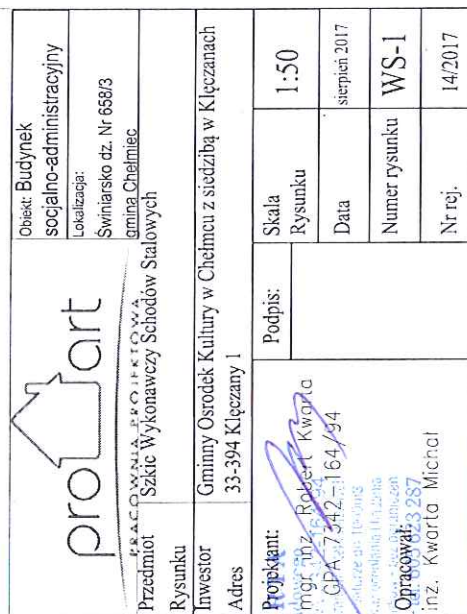 pro art
PRACOWNIA PROJEKTOWA
Obiekt: Budynek
socjalno-administracyjny
Lokalizacja:
Świniarsko dz. Nr 658/3
gmina Chełmiec
Przedmiot
Rysunku
Szkic Wykonawczy Schodów Stalowych
Inwestor
Adres
Gminny Osrodek Kultury w Chełmcu z siedzibą w Klęczanach
33-394 Klęczany 1
Projektant:
mgr inż. Robert Kwarta
GPA-7342-164/94
Opracował:
inż. Kwarta Michał
Podpis:
Skala
Rysunku
1:50
Data
sierpień 2017
Numer rysunku
WS-1
Nr rej.
14/2017